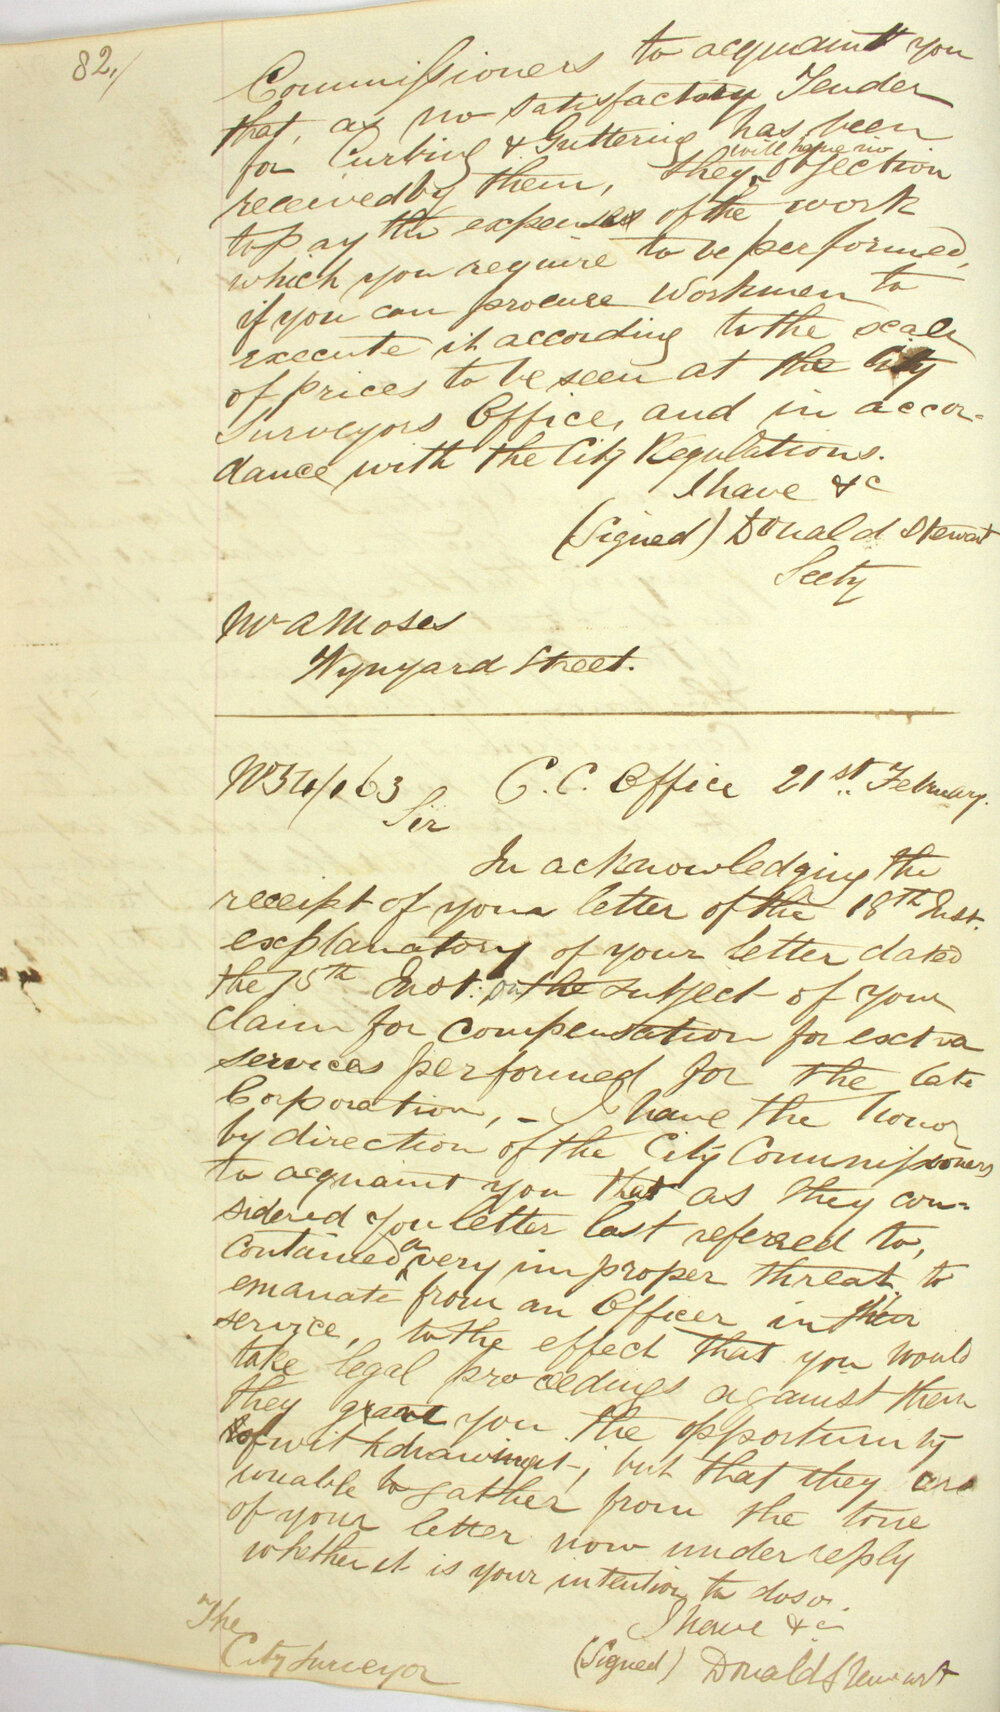 82./
Commissioners to acquaint you
that, as no satisfactory Tender
for Curbing & Guttering has been
will have no
received by them, they objection
to pay the expenses of the work
which you require to be performed,
if you can procure Workmen to
execute it according to the scale
of prices to be seen at the City
Surveyors Office, and in accor=
dance with the City Regulations.
I have &c
(Signed) Donald Stewart
Secty
Mr A Moses
Wynyard Street.
C. C. Office 21st. February.
Sir
In acknowledging the
receipt of your letter of the 18th Inst.
explanatory of your letter dated
the 15th Inst: on the subject of your
claim for compensation for extra
services performed for the late
Corporation, – I have the honor
by direction of the City Commissioners
to acquaint you that as they con=
sidered you letter last referred to,
contained a very improper threat to
emanate from an Officer in their
service, to the effect that you would
take legal proceedings against them
they grant you the opportunity
of withdrawing it; but that they are
unable to gather from the tone
of your letter now under reply
whether it is your intention to do so.
I have &c
The
City Surveyor
(Signed) Donald Stewart